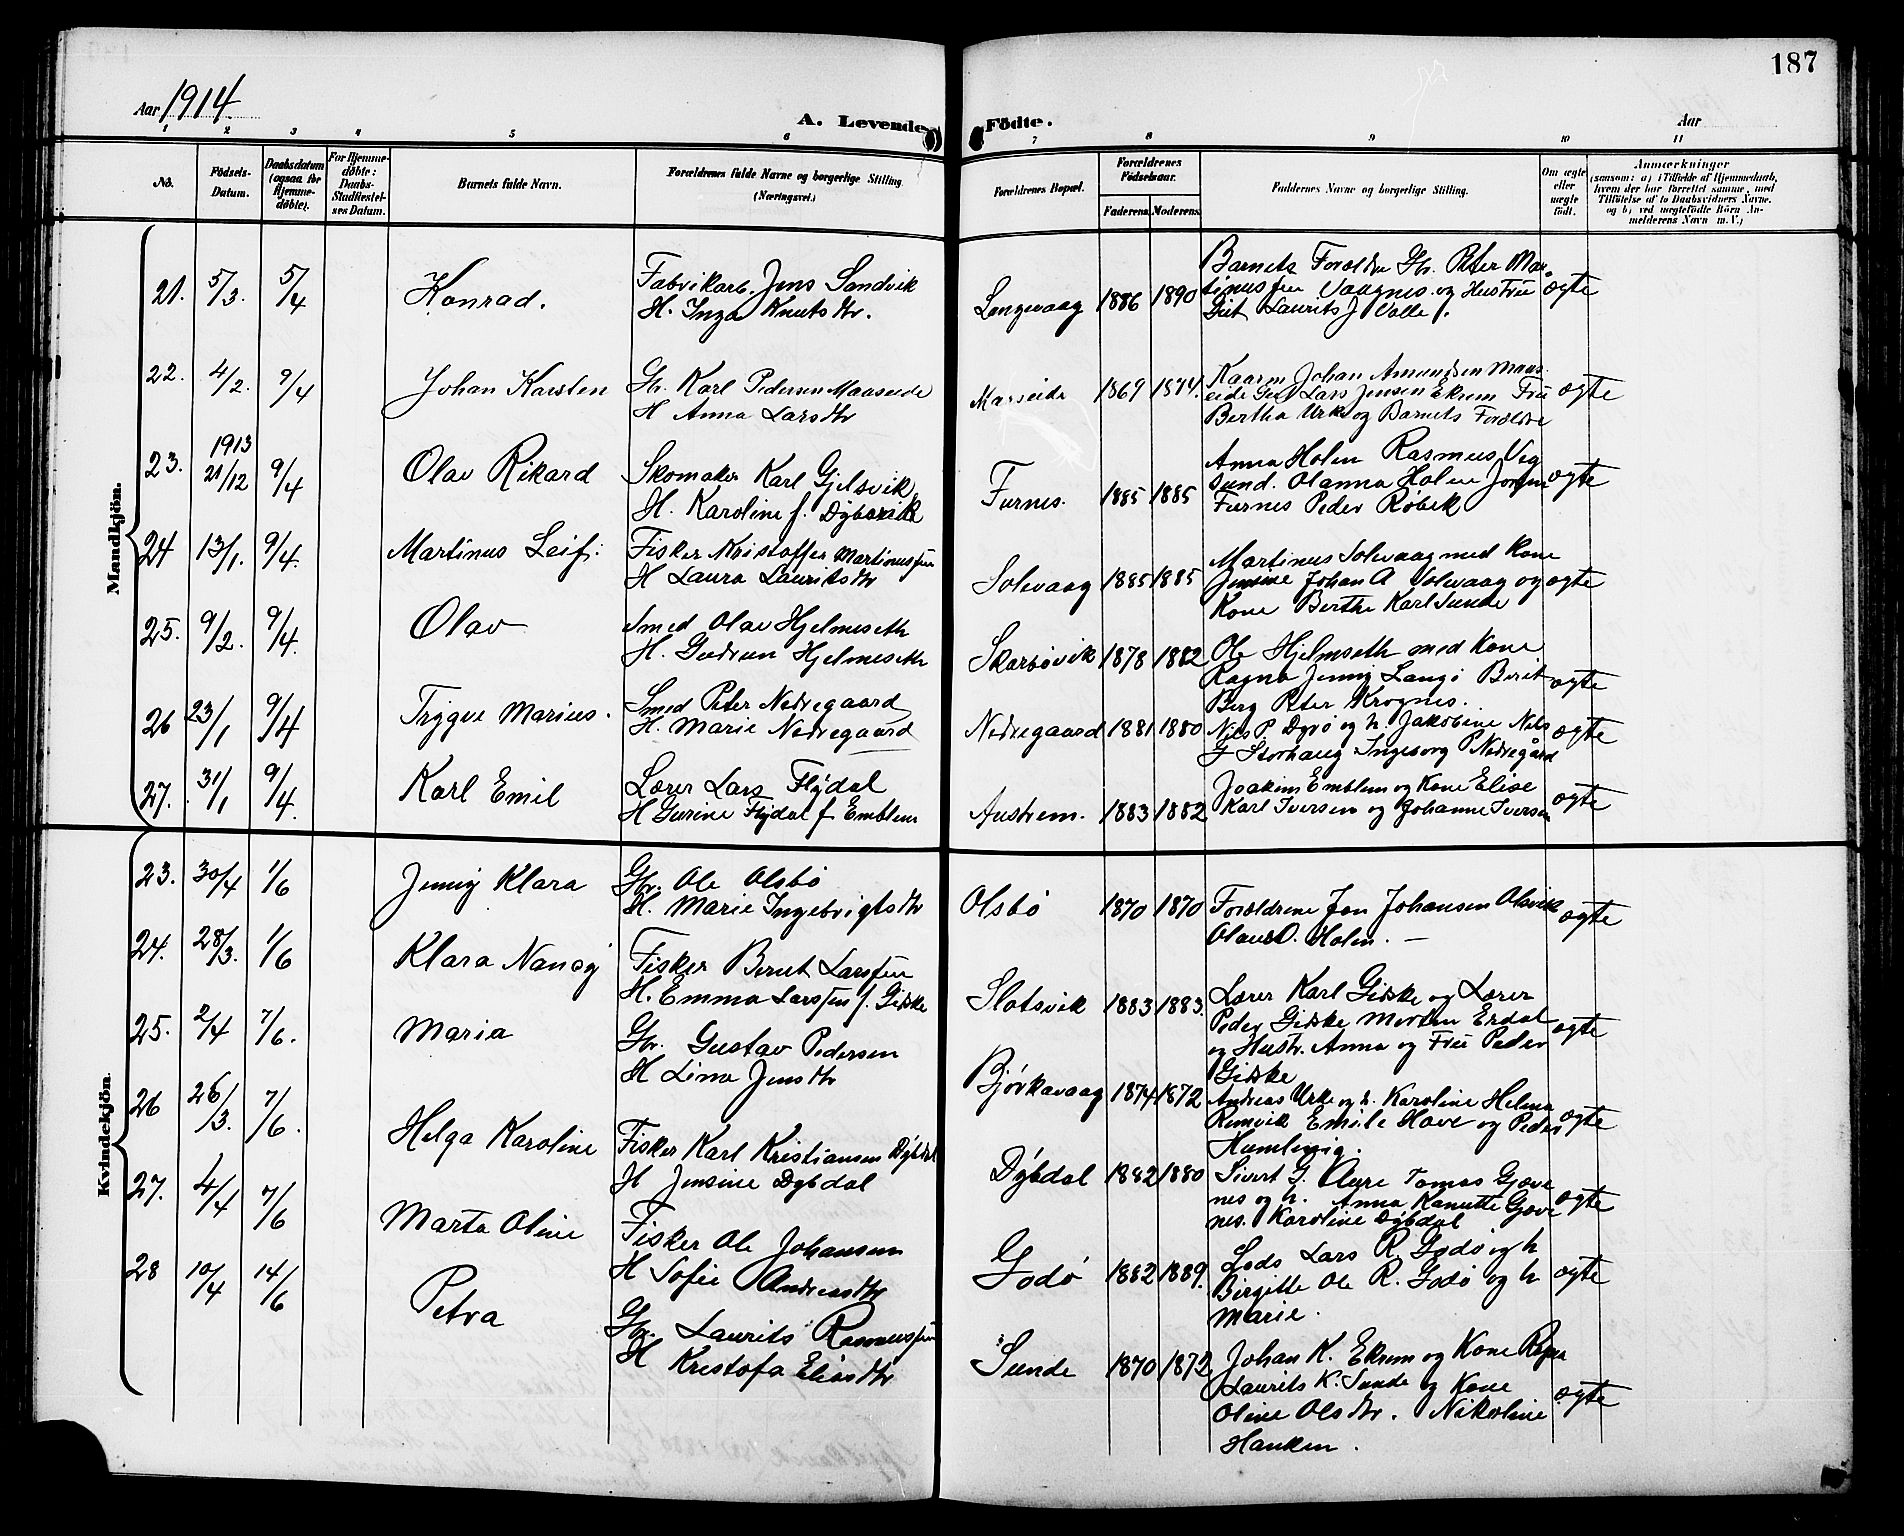 187
Aar 1914.
A. Levende Födte.
Aar
1 2 3 4 5 6 7 8 9 10 11
No.
Födsels-
Datum.
Daabsdatum
(ogsaa for
Hjemme-
døbte).
For Hjemme-
døbte:
Daabs-
Stadfæstel-
ses Datum.
Barnets fulde Navn.
Forældrenes fulde Navne og borgerlige Stilling
(Næringsvei.)
Forældrenes Bopæl.
Forældrenes
Födselsaar.
Faderens. Moderens.
Faddernes Navne og borgerlige Stilling.
Om ægte
eller
uægte
födt.
Anmærkninger
(saasom: a) i Tilfælde af Hjemmedaab,
hvem der har forrettet samme, med
Tilföielse af to Daabsvidners Navne.
og b) ved uegtefödte Börn An-
melderens Navn m. V.)
Mandkjön.
21. 5/3. 5/4 Konrad.
Fabrikarb. Jens Sandvik
H. Inga Knutsdtr.
Langevaag 1886 1890
Barnets Forældre Gbr. Peter Mar-
tinussen Vaagnes og Hustru
Git Laurits J Valle.
ægte
22. 4/2. 9/4 Johan Karsten
Gbr. Karl Pedersen Maaseide
H Anna Larsdtr
Maseide 1869 1874.
Kaaren Johan Amundsen Maas
eide Gut Lars Jensen Ekrem Fru
Bertha Urke og Barnets Forældre
ægte
23. 1913 21/12 9/4 Olav Rikard
Skomaker Karl Gjelsvik
H. Karoline f. Dybvik
Furnes. 1885 1885
Anna Holen Rasmus Veg
sund. Olanna Holen
Furnes Peder Røbek
ægte
24 13/1. 9/4. Martinus Leif.
Fisker Kristoffer Martinussen
H Laura Lauritsdtr
Solevaag 1885 1885
Martinus Solevaag med Kone
Jensine Johan A Solevaag og
Kone Berthe Karl Sunde
ægte
25. 9/2. 9/4. Olav
Smed Olav Hjelmeseth
H. Gudrun Hjelmeseth
Skarbøvik 1878 1882
Ole Hjelmseth med Kone
Ragna Jenny Langø Berit
Berg Peter Krognes.
ægte
26 23/1 9/4 Trygve Marius.
Smed Peter Nedregaard
H. Marie Nedregaard
Nedregaard 1881 1880
Nils P. Dyrø og h. Jakobine Nils
J Storhaug Ingeborg P Nedregård
ægte
27. 31/1 9/4. Karl Emil
Lærer Lars Flydal
H Gurine Flydal f Emblem
Austrem. 1883 1882
Joakim Emblem og Kone Elise
Karl Iversen og Johanne Iversen
ægte
Kvindekjön.
23. 30/4 1/6 Jenny Klara
Gbr. Ole Olsbø
H. Marie Ingebrigtsdtr
Olsbö 1870 1870
Forældrene Jon Johansen Olsvik
Olaus O. Holen. —
ægte
24. 28/3. 1/6 Klara Nancy
Fisker Bernt Larssen
H. Emma Larssen f. Giske
Slotsvik 1883 1883.
Lærer Karl Giske og Lærer
Peder Giske Morten Erdal
og Hustr. Anna og Fru Peder
Giske
ægte
25. 2/4 7/6. Maria
Gbr. Gustav Pedersen
H Lina Jensdtr
Bjørkavaag 1874 1872
Andreas Urke og h. Karoline Helma
Remvik Emilie Hove og Peder
Humlevig.
ægte
26 26/3. 7/6. Helga Karoline
Fisker Karl Kristiansen Dybdal
H Jensine Dybdal
Dybdal 1882 1880
Sivert G. Aure Tomas Gjøve
nes og h. Anna Kanutte Gjøve
nes. Karoline Dybdal
ægte
27. 4/4 7/6 Marta Oline
Fisker Ole Johansen
H Sofie Andreasdtr
Godø 1882 1889.
Lods Lars R. Godø og h
Birgitte Ole R. Godø og h
Marie.
ægte
28 10/4 14/6 Petra
Gbr. Laurits Rasmussen
H Kristofa Eliasdtr
Sunde 1870 1872
Johan K. Ekrem og Kone Ragna
Laurits K. Sunde og Kone
Oline Olsdtr. Nikoline
Hanken.
ægte